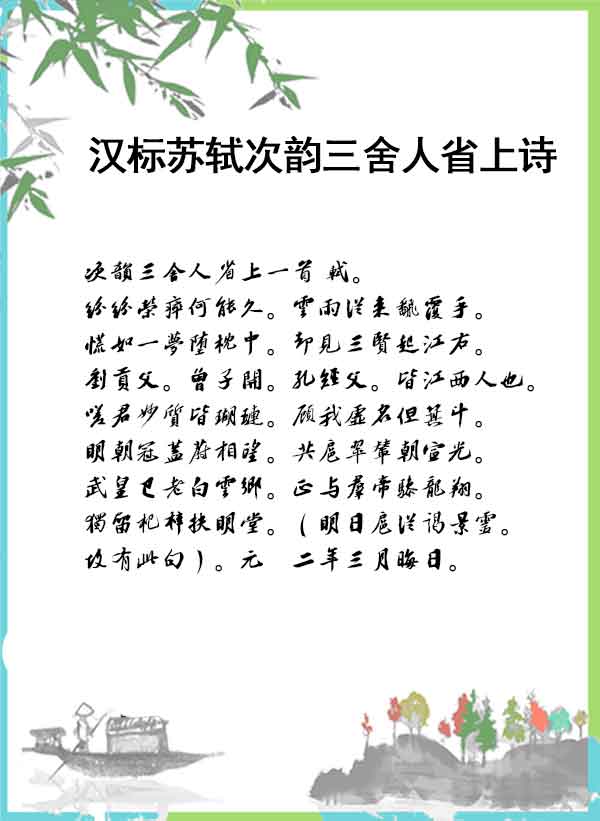 汉标苏轼次韵三舍人省上诗
次韻三舍人省上一首 軾。
紛紛榮瘁何能久。雲雨從来飜覆手。
慌如一夢堕枕中。却見三賢起江右。
劉貢父。曾子開。孔經父。皆江西人也。
嗟君妙質皆瑚璉。顧我虛名但箕斗。
明朝冠蓋蔚相望。共扈翠輦朝宣光。
武皇已老白雲鄉。正与羣帝驂龍翔。
獨留杞梓扶明堂。(明日扈從謁景靈。
故有此句)。元 二年三月晦日。